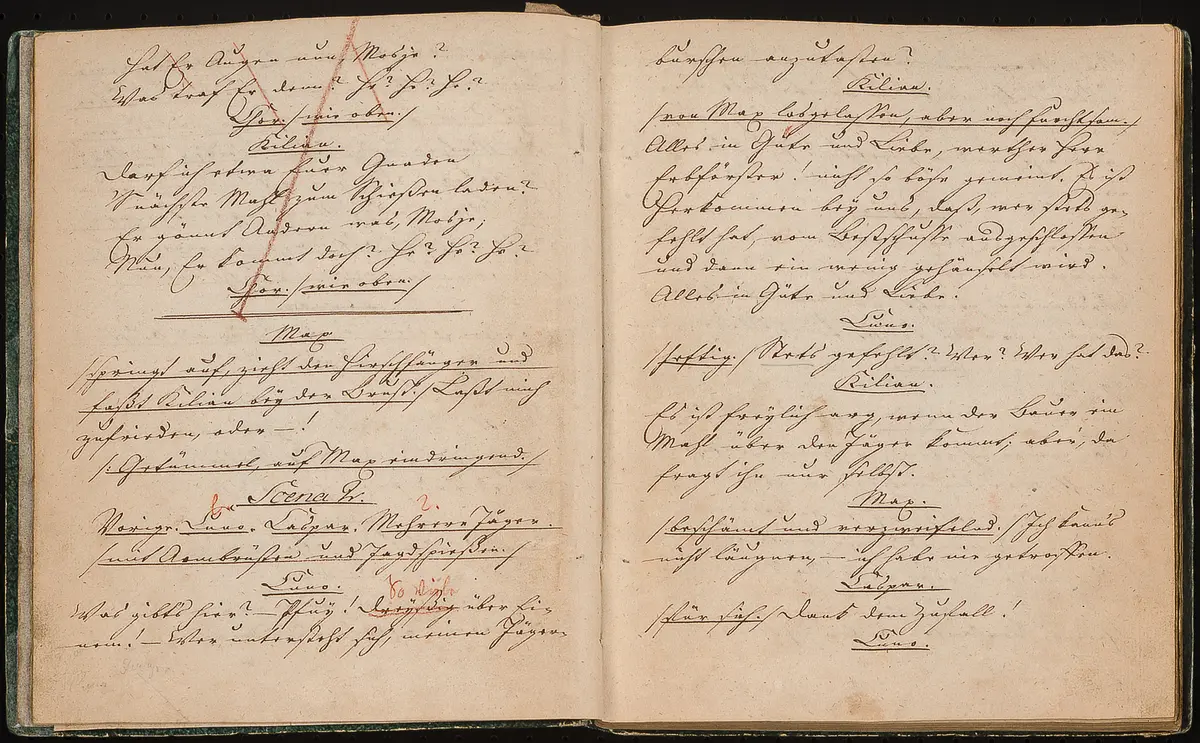 hat Er Augen nun, Mosje?
Was traf Er denn? He? He? He?
Chor. /:wie oben:/
Kilian.
Darf ich etwa Euer Gnaden
's nächste Mahl zum Schießen laden?
Er gönnt Andern was, Mosje;
Nun, Er kommt doch? He? He? He?
Chor. /:wie oben:/
Max
/:springt auf, zieht den Hirschfänger und
faßt Kilian bey der Brust:/ Laßt mich
zufrieden, oder —!
/: Getümmel, auf Max eindringend:/
Scena 2.
Vorige. Cuno. Caspar. Mehrere Jäger.
/:mit Armbrüsten und Jagdspießen:/
Cuno.
So viele
Was gibt's hier? — Pfuy! Dreyßig über Ei-
nem! — Wer untersteht sich, meinen Jäger-
burschen anzutasten?
Kilian.
/:von Max losgelassen, aber noch furchtsam:/
Alles in Güte und Liebe, werther Herr
Erbförster! nicht so böse gemeint. Es ist
Herkommen bey uns, daß, wer stets ge-
fehlt hat, vom Bestschusse ausgeschlossen
und dann ein wenig gehänselt wird.
Alles in Güte und Liebe.
Cuno.
/:heftig:/ Stets gefehlt? Wer? Wer hat das?
Kilian.
Es ist freylich arg, wenn der Bauer ein
Mahl über den Jäger kommt; aber, da
fragt ihn nur selbst.
Max.
/:beschämt und verzweifelnd:/ Ich kann's
nicht läugnen, — ich habe nie getroffen.
Caspar.
/:Für sich:/ Dank dem Zufall!
Cuno.